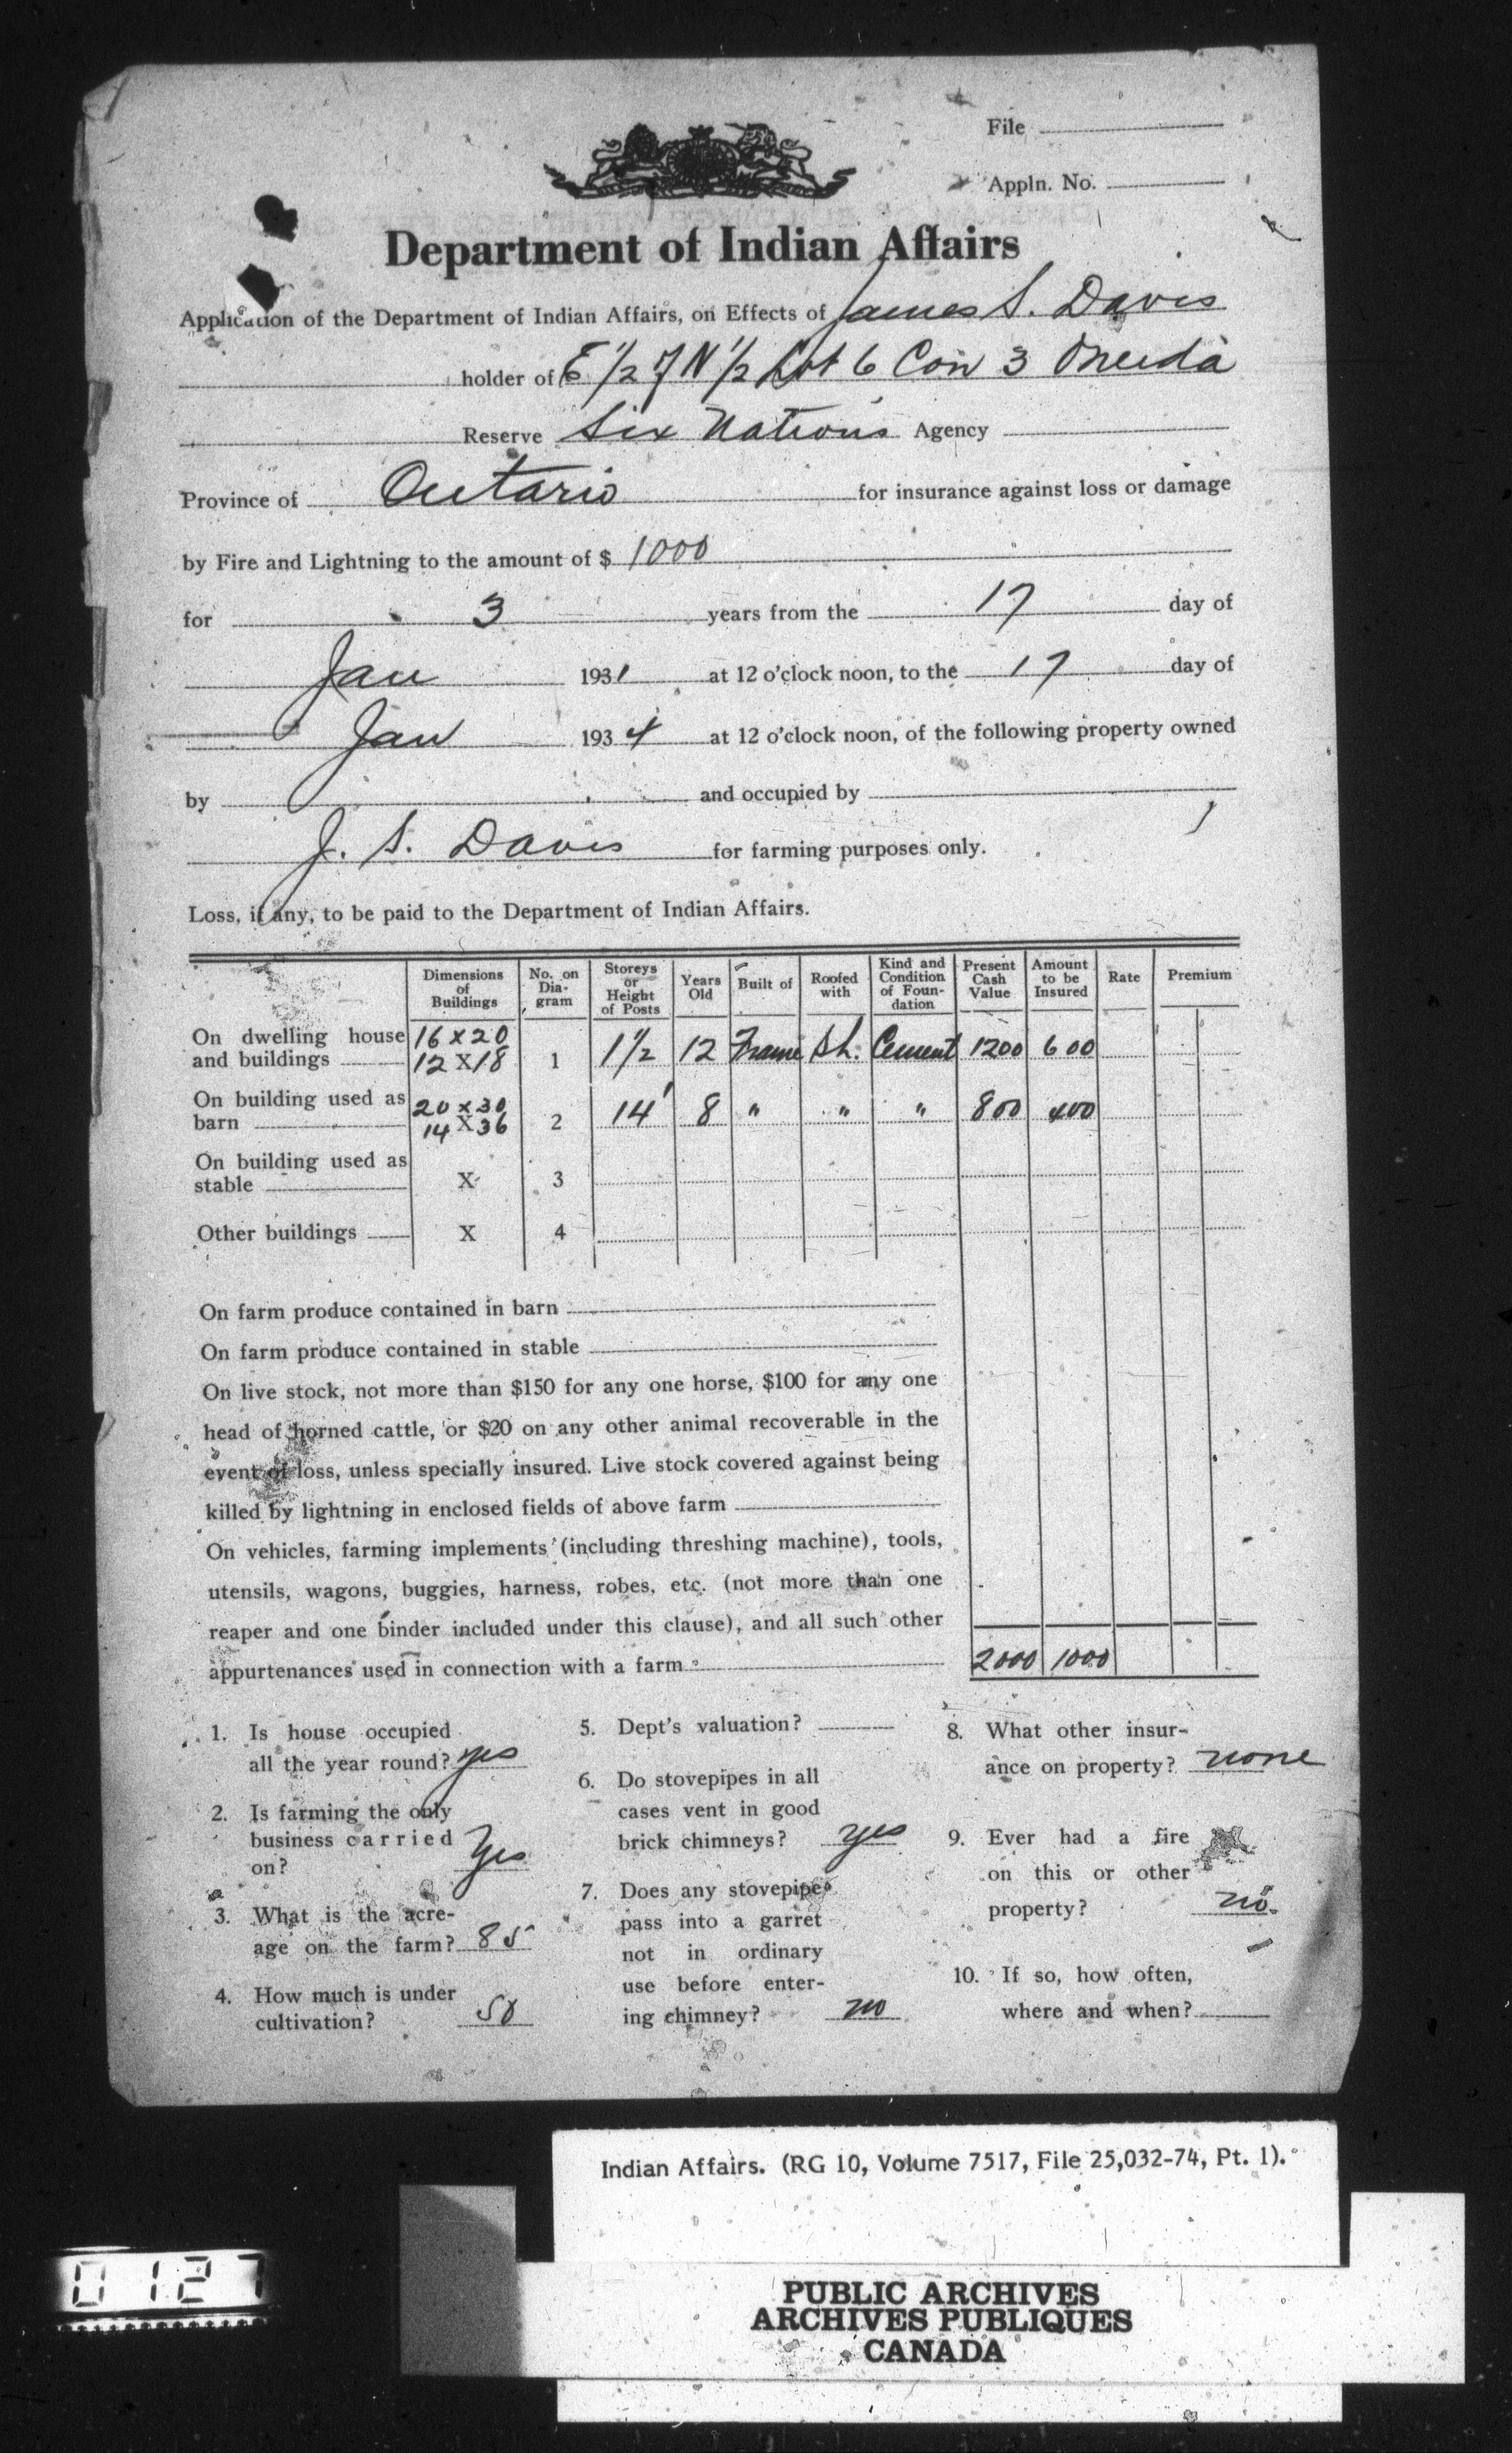 File
Appln. No.
Department of Indian Affairs
Application of the Department of Indian Affairs, on Effects of James S. Davis
holder of E 1/2 of N 1/2 Lot 6 Con 3 Oneida
Reserve Six Nations Agency
Province of Ontario for insurance against loss or damage
by Fire and Lightning to the amount of $ 1000
for 3 years from the 17 day of
Jan 1931 at 12 o'clock noon, to the 17 day of
Jan 1934 at 12 o'clock noon, of the following property owned
by and occupied by
J. S. Davis for farming purposes only.
Loss, if any, to be paid to the Department of Indian Affairs.
Dimensions of Buildings No. on Dia-gram Storeys or Height of Posts Years Old Built of Roofed with Kind and Condition of Foun-dation Present Cash Value Amount to be Insured Rate Premium
On dwelling house 16 x 20
and buildings 12 X 18 1 1 1/2 12 Frame Sh. Cement 1200 600
On building used as 20 x 30
barn 14 X 36 2 14' 8 " " " 800 400
On building used as
stable X 3
Other buildings X 4
On farm produce contained in barn
On farm produce contained in stable
On live stock, not more than $150 for any one horse, $100 for any one
head of horned cattle, or $20 on any other animal recoverable in the
event of loss, unless specially insured. Live stock covered against being
killed by lightning in enclosed fields of above farm
On vehicles, farming implements (including threshing machine), tools,
utensils, wagons, buggies, harness, robes, etc. (not more than one
reaper and one binder included under this clause), and all such other
appurtenances used in connection with a farm 2000 1000
1. Is house occupied
all the year round? yes
2. Is farming the only
business carried
on? Yes
3. What is the acre-
age on the farm? 85
4. How much is under
cultivation? 50
5. Dept's valuation?
6. Do stovepipes in all
cases vent in good
brick chimneys? yes
7. Does any stovepipe
pass into a garret
not in ordinary
use before enter-
ing chimney? no
8. What other insur-
ance on property? none
9. Ever had a fire
on this or other
property? no.
10. If so, how often,
where and when?
Indian Affairs. (RG 10, Volume 7517, File 25,032-74, Pt. 1).
0127
PUBLIC ARCHIVES
ARCHIVES PUBLIQUES
CANADA